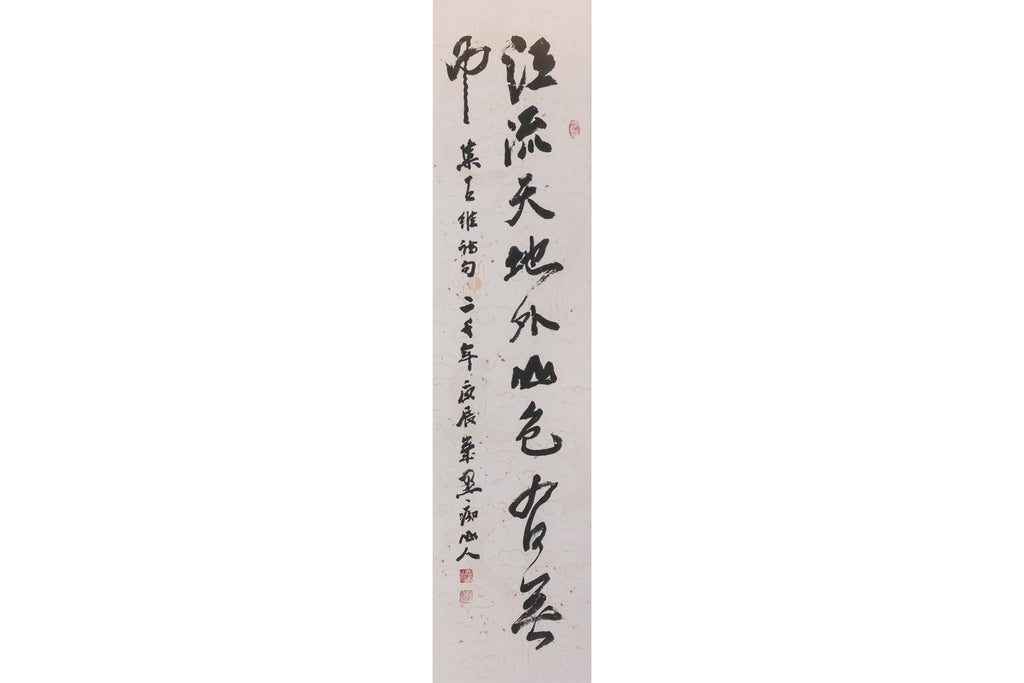 江流天地外山色有無
中 集王維詩句 二千年 庚辰歲 墨痴山人